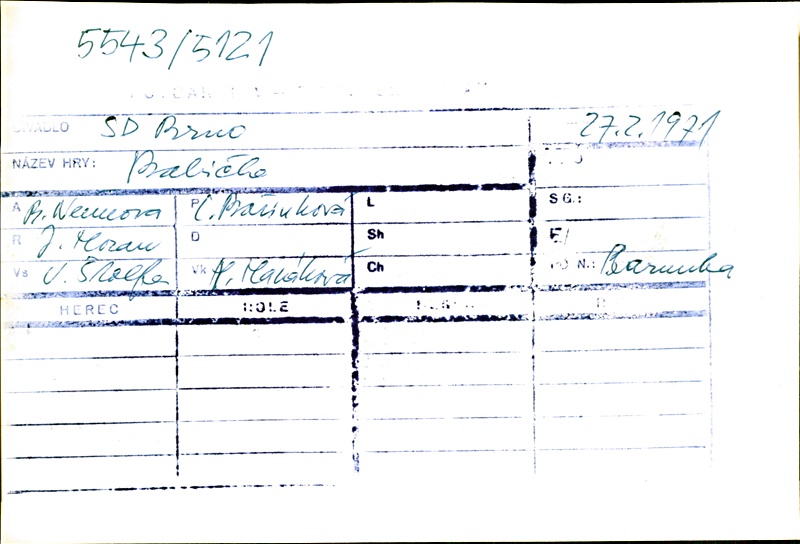 5543/5121
DIVADLO SD Brno 27.2.1971
NÁZEV HRY: Babička
A B. Němcová P L. Bářinková L SG.:
R J. Moran D Sh E/
Vs V. Štolfa Vk A. Hanáková Ch PŮ N.: Barunka
HEREC ROLE HEREC R